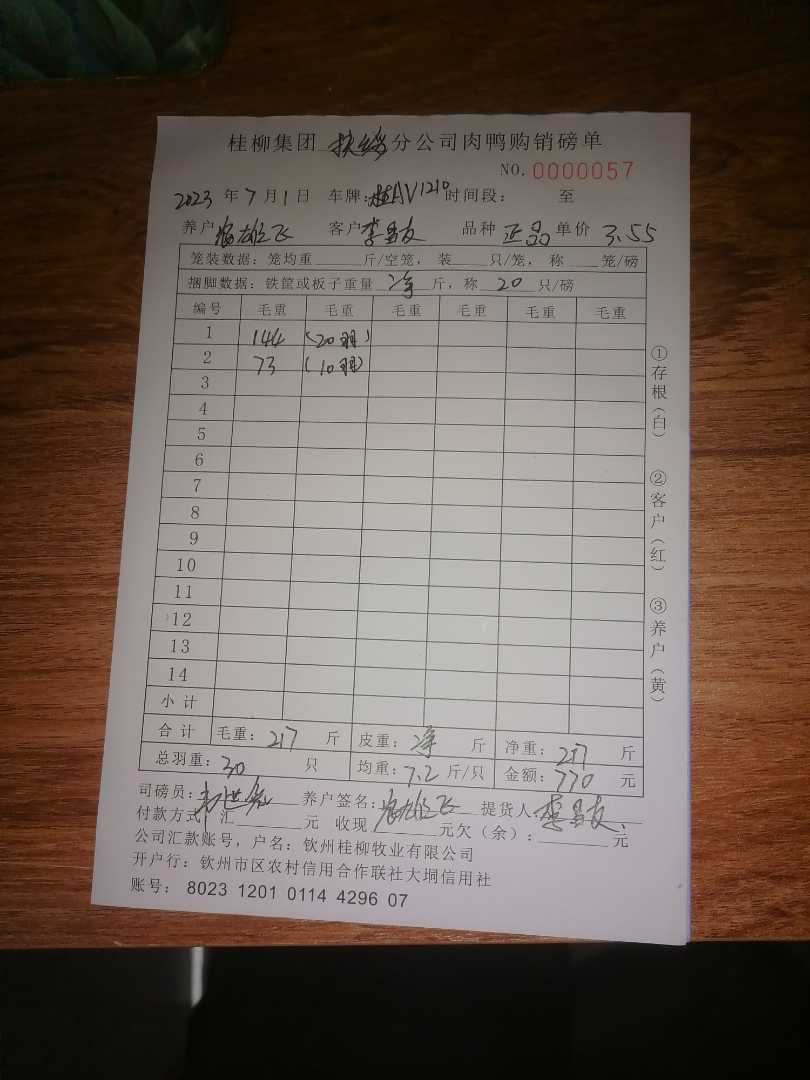 桂柳集团 扶绥 分公司肉鸭购销磅单
NO. 0000057
2023 年 7 月 1 日 车牌：桂AV1210 时间段： 至
养户 客户 李昌友 品种 正品 单价 3.55
笼装数据：笼均重____斤/空笼，装____只/笼，称____笼/磅
捆脚数据：铁筐或板子重量 净 斤，称 20 只/磅
编号 毛重 毛重 毛重 毛重 毛重 毛重
1 144 (20羽)
2 73 (10羽)
3
4
5
6
7
8
9
10
11
12
13
14
小计
合计 毛重：217 斤 皮重：净 斤 净重：217 斤
总羽重：30 只 均重：7.2 斤/只 金额：770 元
司磅员： 养户签名： 提货人：李昌友
付款方式：汇____元 收现____元欠（余）：____元
公司汇款账号，户名：钦州桂柳牧业有限公司
开户行：钦州市区农村信用合作联社大垌信用社
账号：8023 1201 0114 4296 07
①存根（白） ②客户（红） ③养户（黄）